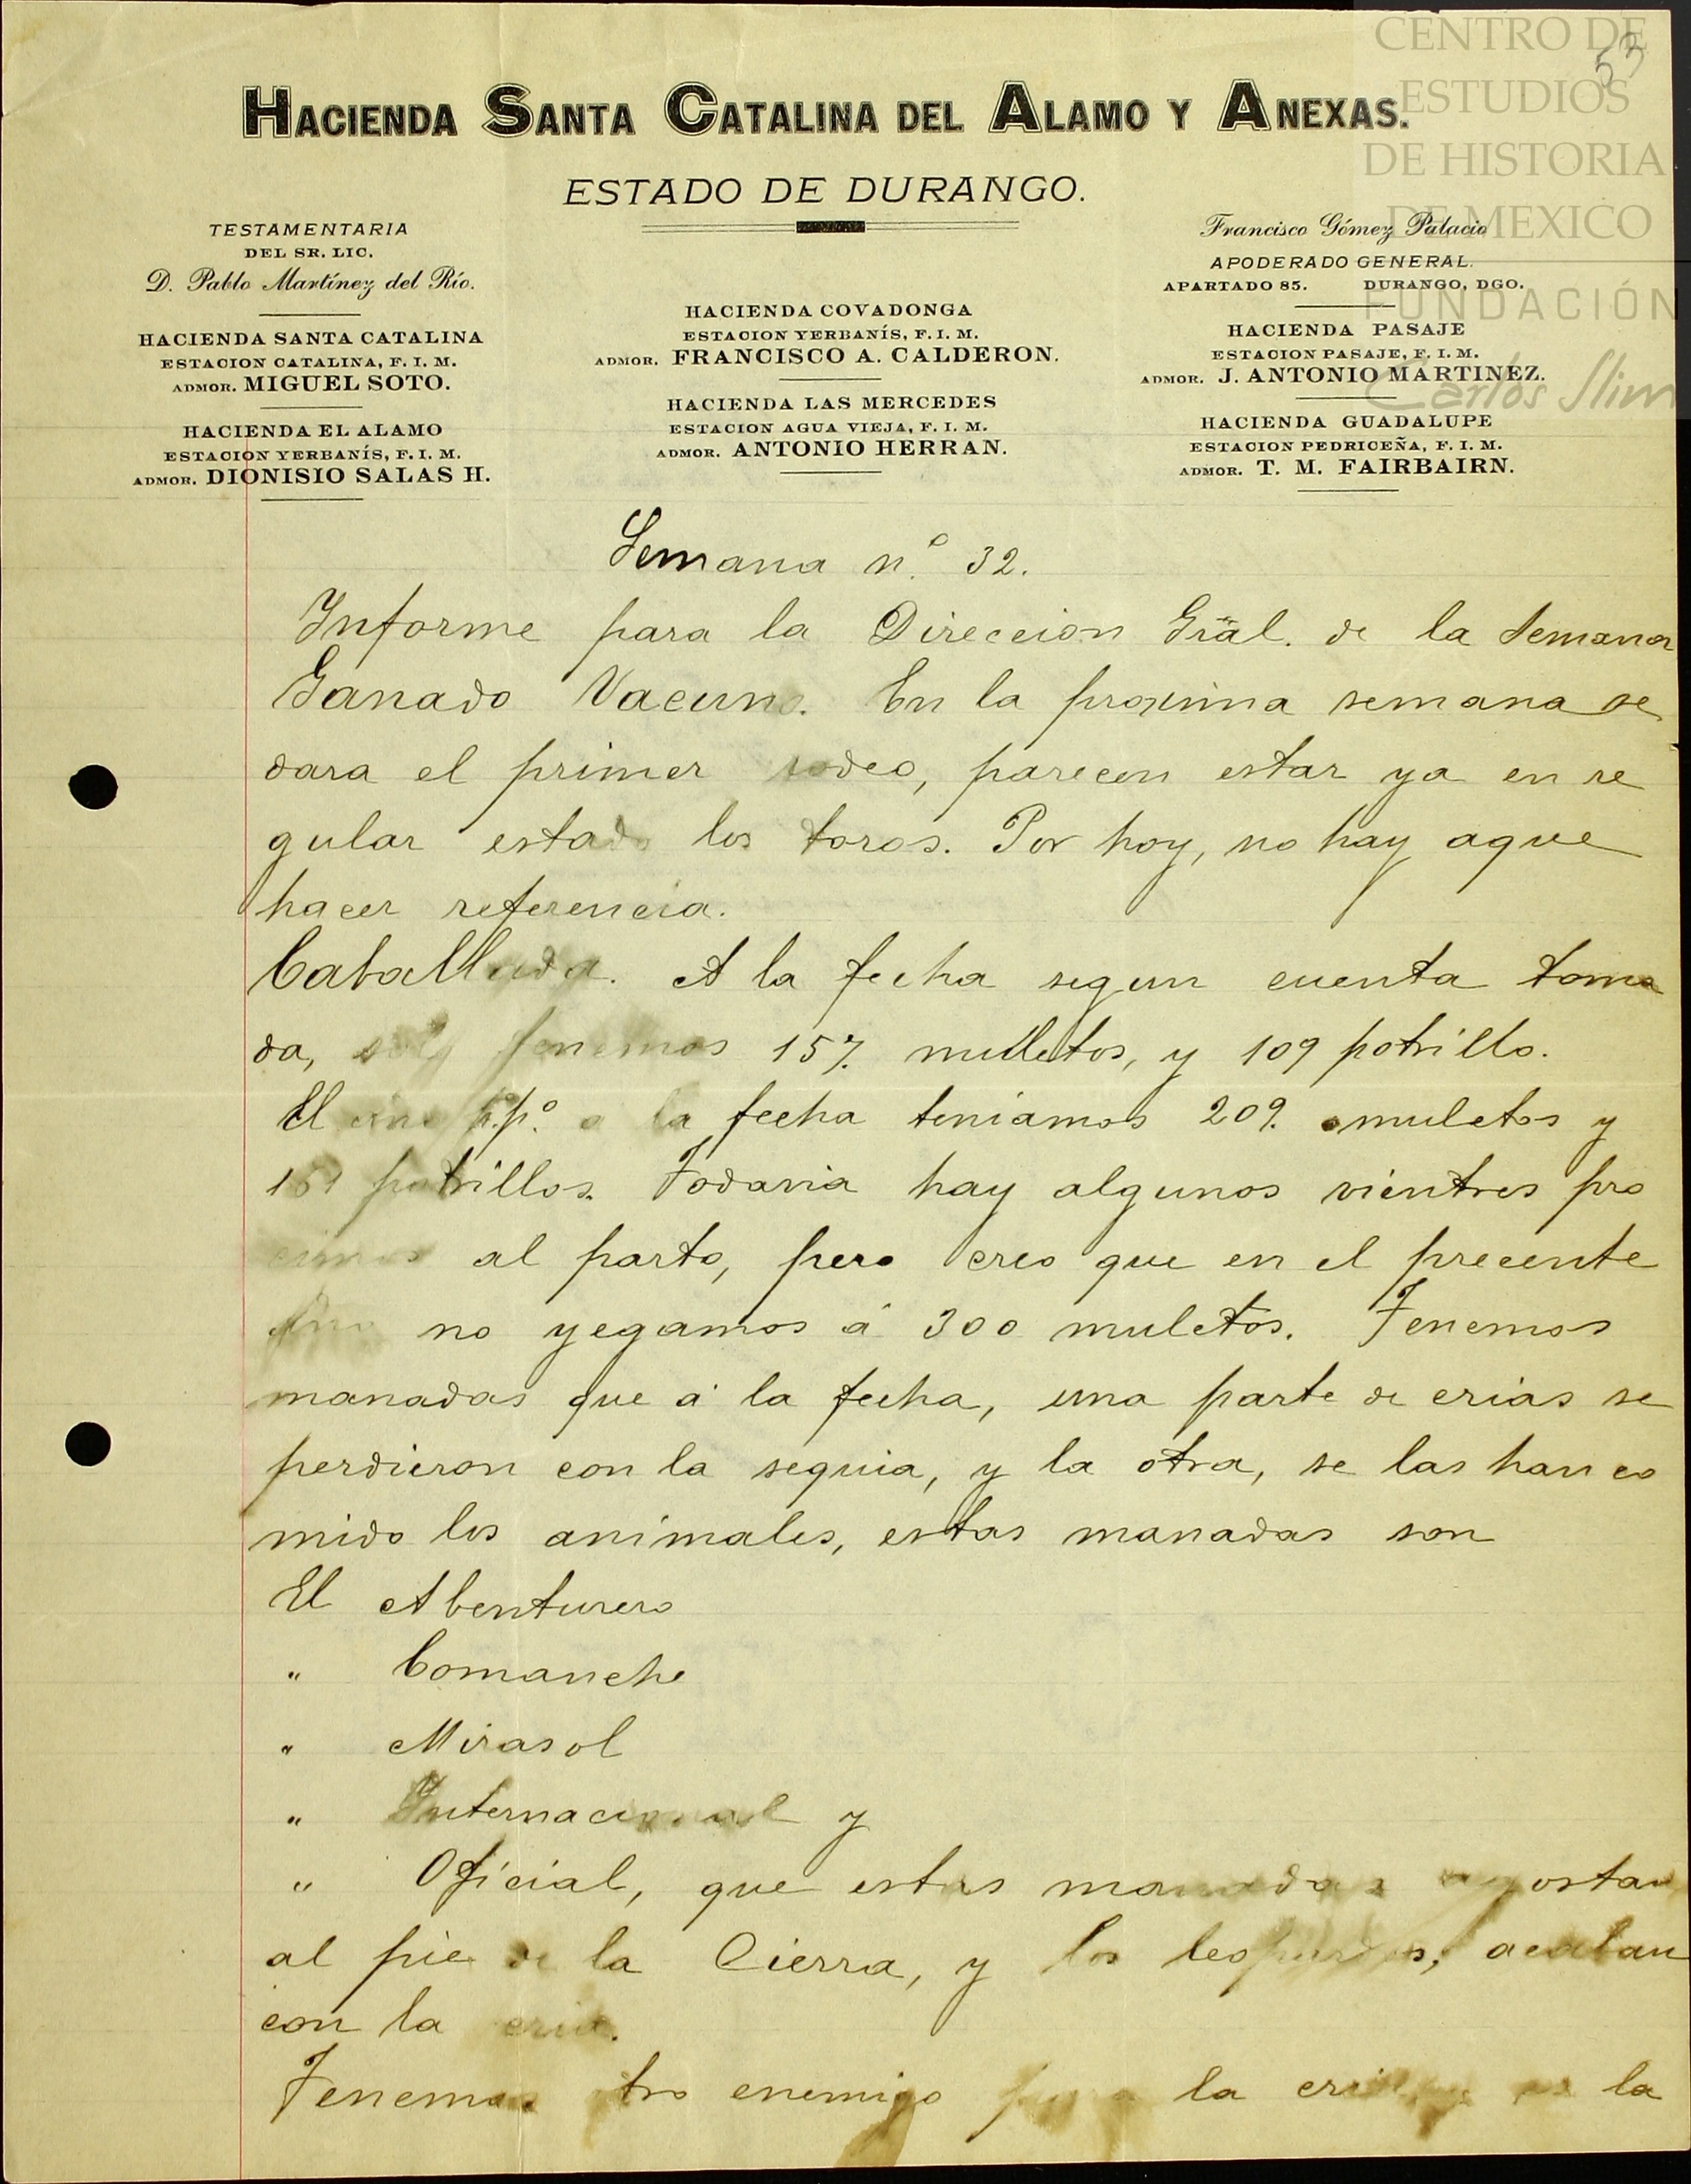 CENTRO DE
ESTUDIOS
DE HISTORIA
DE MEXICO
FUNDACIÓN
Carlos Slim
53
HACIENDA SANTA CATALINA DEL ALAMO Y ANEXAS.
ESTADO DE DURANGO.
TESTAMENTARIA
DEL SR. LIC.
D. Pablo Martínez del Río.
HACIENDA SANTA CATALINA
ESTACION CATALINA, F. I. M.
ADMOR. MIGUEL SOTO.
HACIENDA EL ALAMO
ESTACION YERBANÍS, F. I. M.
ADMOR. DIONISIO SALAS H.
HACIENDA COVADONGA
ESTACION YERBANÍS, F. I. M.
ADMOR. FRANCISCO A. CALDERON.
HACIENDA LAS MERCEDES
ESTACION AGUA VIEJA, F. I. M.
ADMOR. ANTONIO HERRAN.
Francisco Gómez Palacio
APODERADO GENERAL.
APARTADO 85. DURANGO, DGO.
HACIENDA PASAJE
ESTACION PASAJE, F. I. M.
ADMOR. J. ANTONIO MARTINEZ.
HACIENDA GUADALUPE
ESTACION PEDRICEÑA, F. I. M.
ADMOR. T. M. FAIRBAIRN.
Semana n.º 32.
Informe para la Direccion Gräl. de la Semana
Ganado Vacuno. En la proxima semana se
dara el primer rodeo, parecen estar ya en re
gular estado los toros. Por hoy, no hay aque
hacer referencia.
Caballada. A la fecha segun cuenta toma
da, solo tenemos 157. muletos, y 109 potrillo.
El p.pº. a la fecha teniamos 209. muletos y
potrillos. Todavia hay algunos vientres pro
cimos al parto, pero creo que en el precente
no yegamos á 300 muletos. Tenemos
manadas que á la fecha, una parte de crias se
perdieron con la sequia, y la otra, se las han co
mido los animales, estas manadas son
El Abenturero
" Comanche
" Mirasol
" Internacional y
" Oficial, que estas manadas agostan
al pie de la Cierra, y los leopardos, acaban
con la cria.
Tenemos otro enemigo para la cria, es la